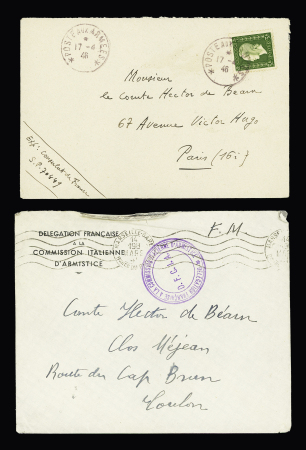 POSTE AUX ARMÉES
17-4
46
POSTE AUX ARMÉES
17-4
46
Monsieur
le Comte Hector de Béarn
67 Avenue Victor Hugo
Paris (16e)
Exp. Consulat de France
S.P.
DELEGATION FRANÇAISE
A LA
COMMISSION ITALIENNE
D'ARMISTICE
F.M.
D.F.C.I.A.
Comte Hector de Béarn
Clos Méjean
Route du Cap Brun
Toulon